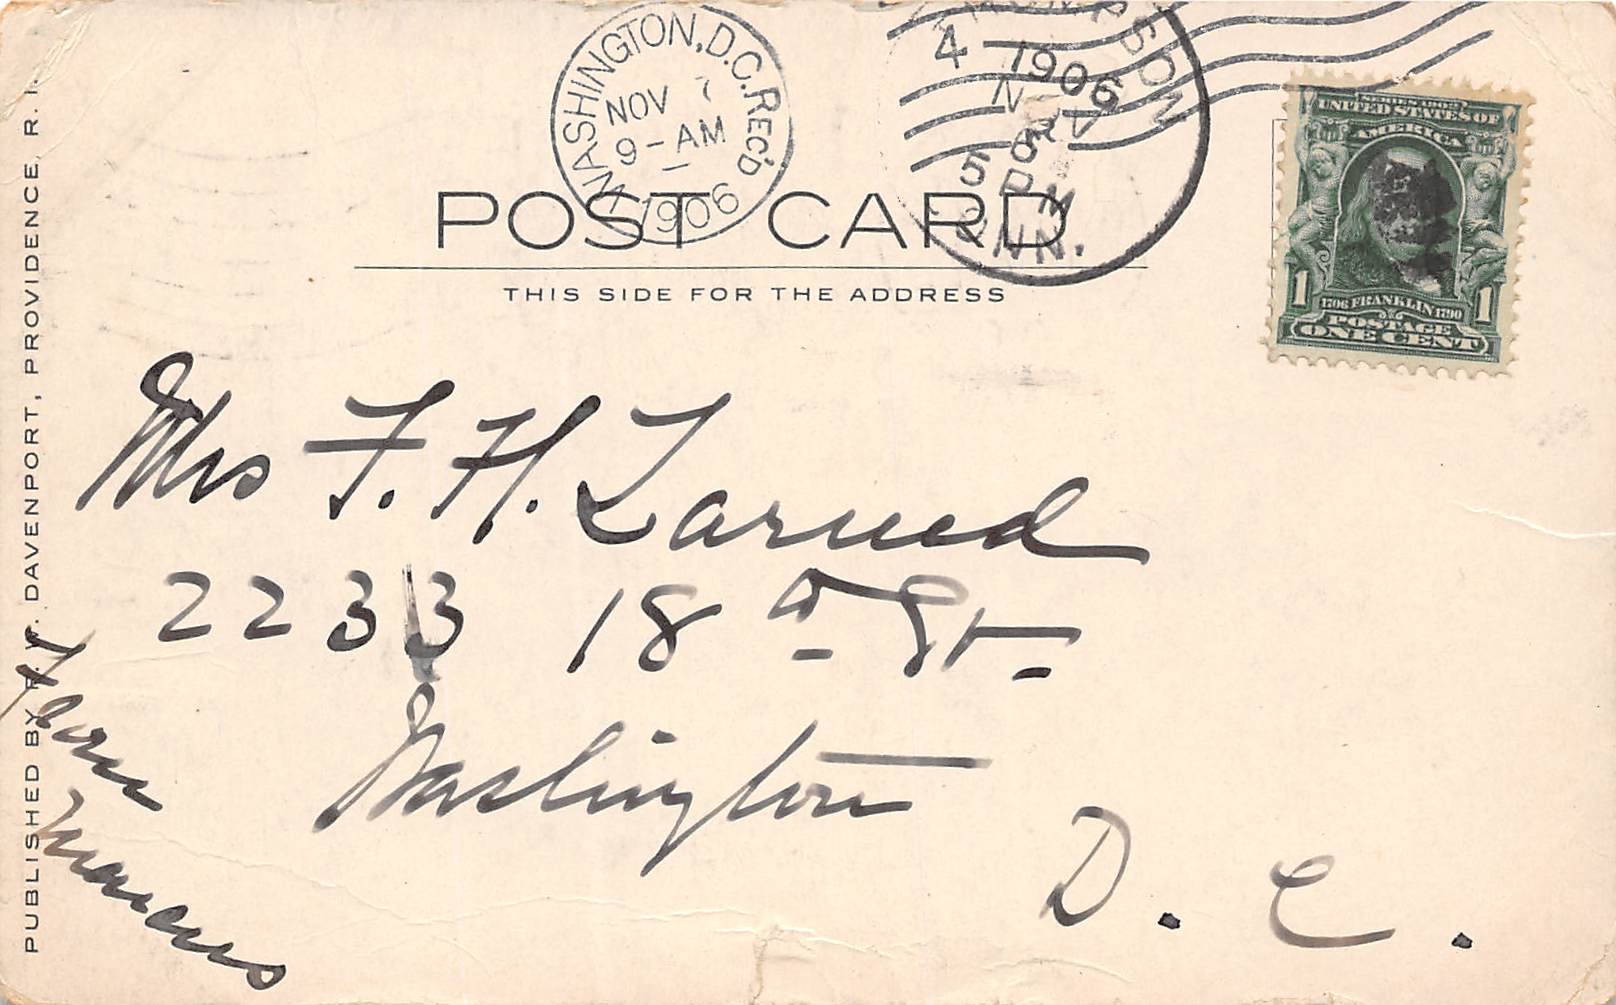 WASHINGTON, D.C. REC'D
NOV 7
9-AM
1906
THOMPSON
4
1906
NOV
5
5 PM
CONN.
UNITED STATES OF
AMERICA
1706 FRANKLIN 1790
1 1
POSTAGE
ONE CENT
POST CARD
THIS SIDE FOR THE ADDRESS
Mrs F. H. Larned
2233 18th St.
Washington
D. C.
PUBLISHED BY DAVENPORT, PROVIDENCE, R. I.